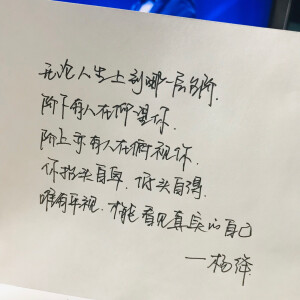 无论人生上到哪一层台阶.
阶下有人在仰望你.
阶上亦有人在俯视你.
你抬头自卑.低头自得.
唯有平视.才能看见真实的自己
—杨绛